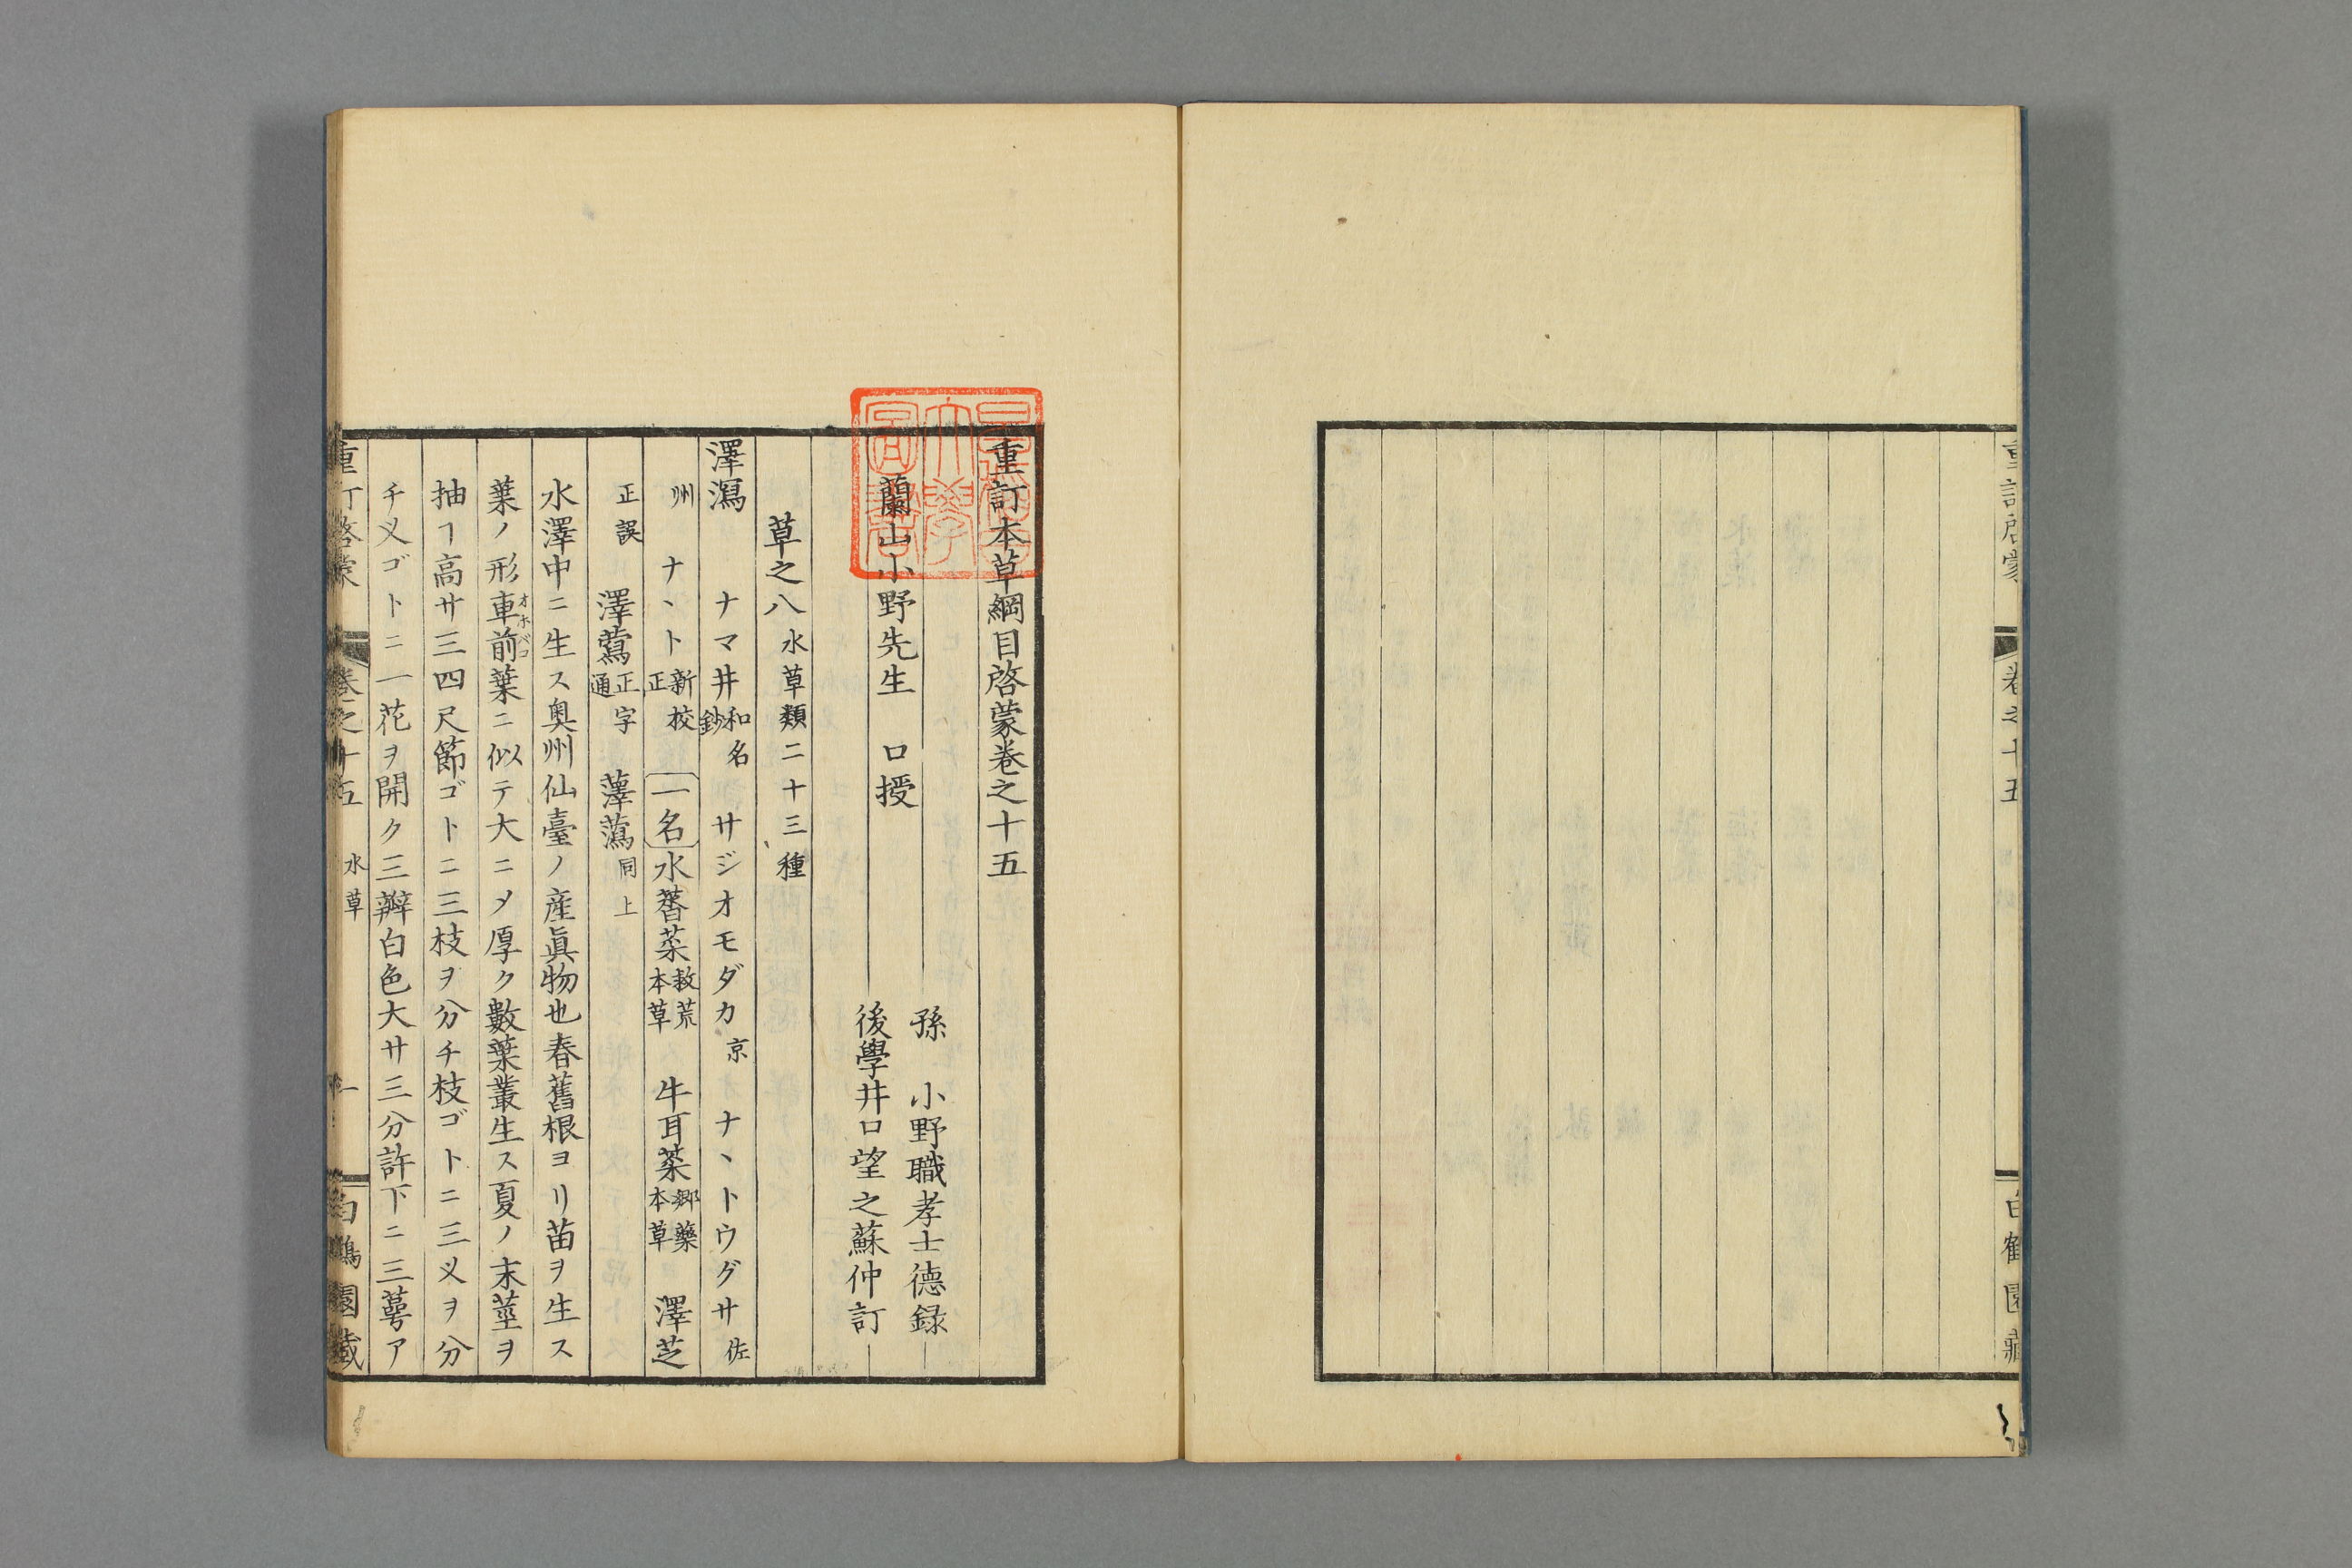 重訂啓蒙 卷之十五 白鶴園藏
重訂本草綱目啓蒙卷之十五
蘭山小野先生 口授
孫 小野職孝士德録
後學井口望之蘇仲訂
草之八 水草類二十三種
澤瀉 ナマ井 和名鈔 サジオモダカ 京 ナヽトウグサ 佐
州 ナヽト 新校正 一名 水蓉菜 救荒本草 牛耳菜 郷藥本草 澤芝
正誤 澤鵞 正字通 藫蕮 同上
水澤中ニ生ス奥州仙臺ノ産眞物也春舊根ヨリ苗ヲ生ス
葉ノ形車前(オホバコ)葉ニ似テ大ニメ厚ク數葉叢生ス夏ノ末莖ヲ
抽ヿ高サ三四尺節ゴトニ三枝ヲ分チ枝ゴトニ三义ヲ分
チ义ゴトニ一花ヲ開ク三瓣白色大サ三分許下ニ三萼ア
重訂啓蒙 卷之十五 水草 一 白鶴園藏